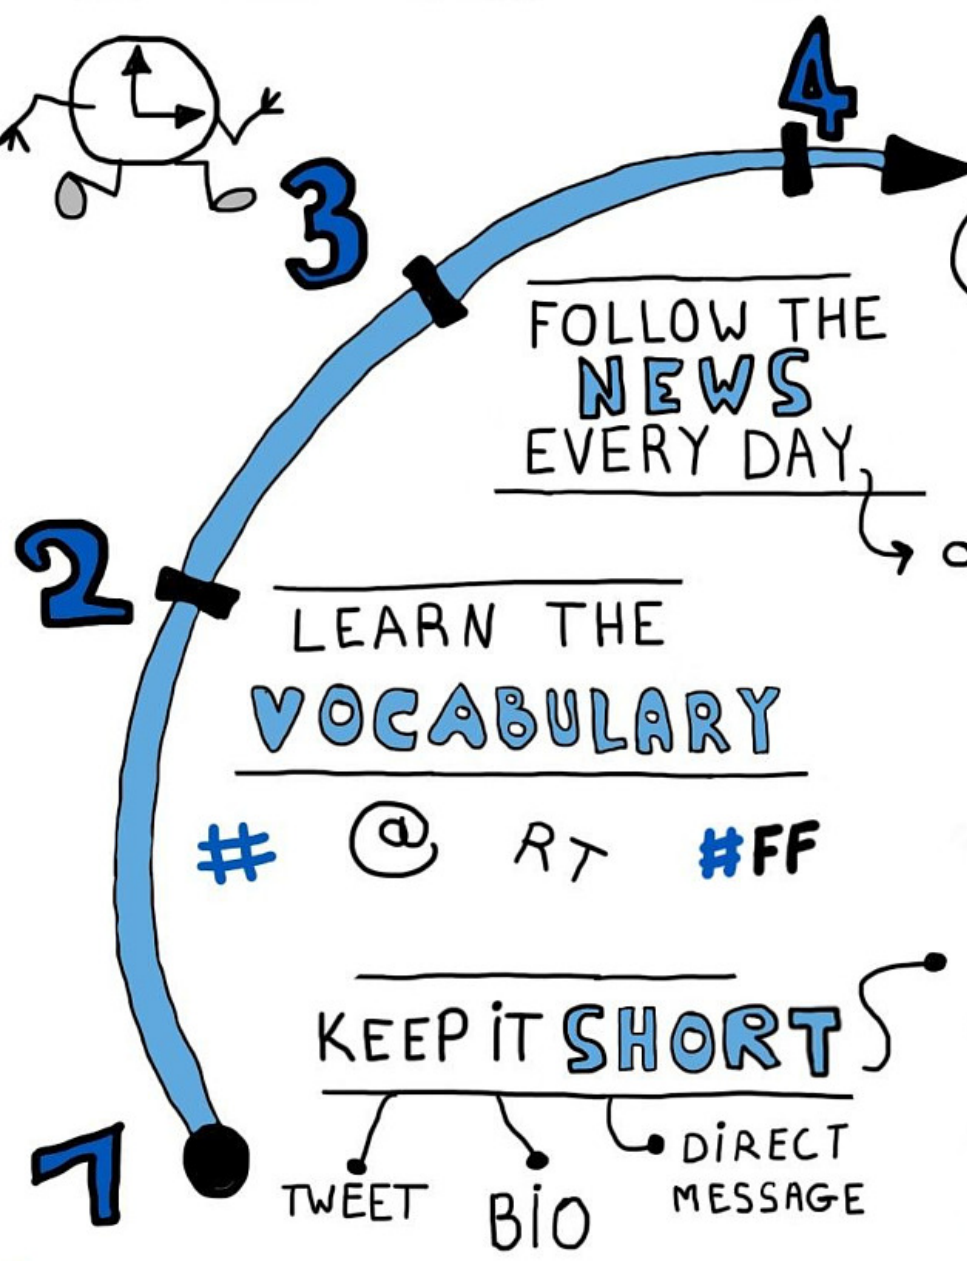 4
3
FOLLOW THE
NEWS
EVERY DAY
2
LEARN THE
VOCABULARY
# @ RT #FF
KEEP iT SHORT
1
TWEET
BiO
DiRECT
MESSAGE